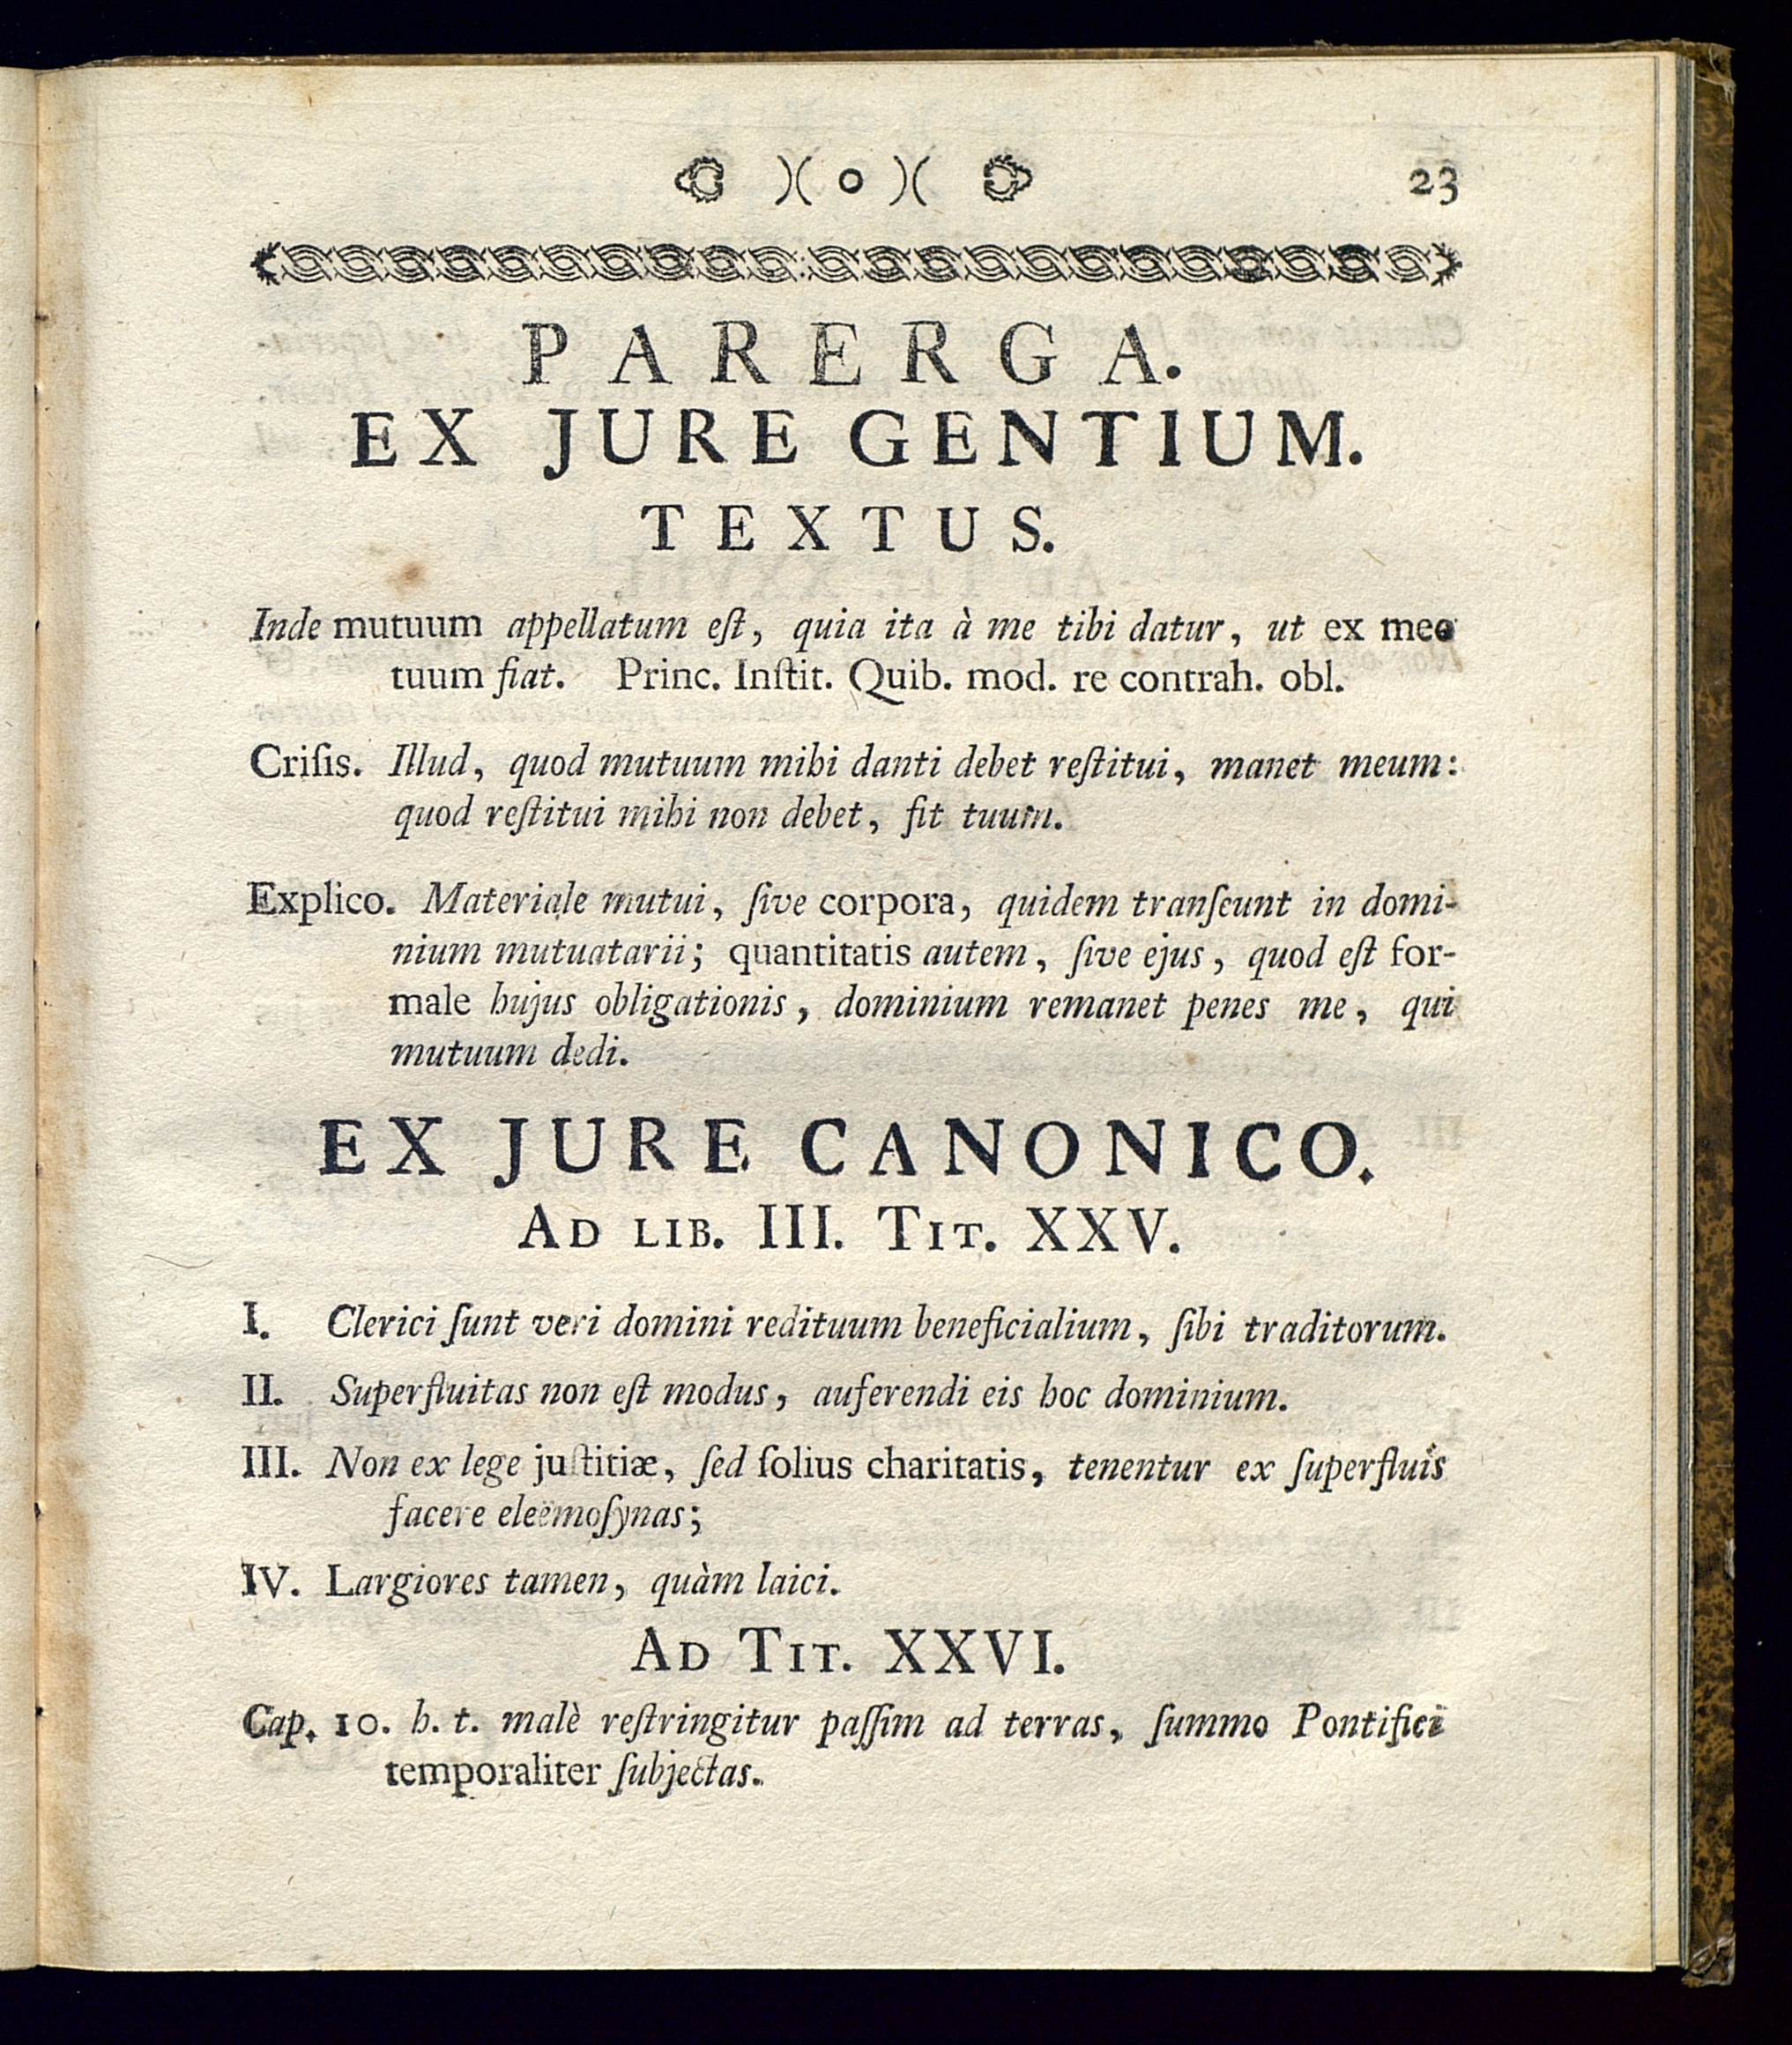 )( o )( 23
PARERGA.
EX JURE GENTIUM.
TEXTUS.
Inde mutuum appellatum eſt, quia ita à me tibi datur, ut ex meo
tuum fiat. Princ. Inſtit. Quib. mod. re contrah. obl.
Criſis. Illud, quod mutuum mihi danti debet reſtitui, manet meum:
quod reſtitui mihi non debet, fit tuum.
Explico. Materiale mutui, ſive corpora, quidem tranſeunt in domi-
nium mutuatarii; quantitatis autem, ſive ejus, quod eſt for-
male hujus obligationis, dominium remanet penes me, qui
mutuum dedi.
EX JURE CANONICO.
AD LIB. III. TIT. XXV.
I. Clerici ſunt veri domini redituum beneficialium, ſibi traditorum.
II. Superfluitas non eſt modus, auferendi eis hoc dominium.
III. Non ex lege juſtitiæ, ſed ſolius charitatis, tenentur ex ſuperfluis
facere eleëmoſynas;
IV. Largiores tamen, quàm laici.
AD TIT. XXVI.
Cap. 10. h. t. malè reſtringitur paſſim ad terras, ſummo Pontifici
temporaliter ſubjectas.